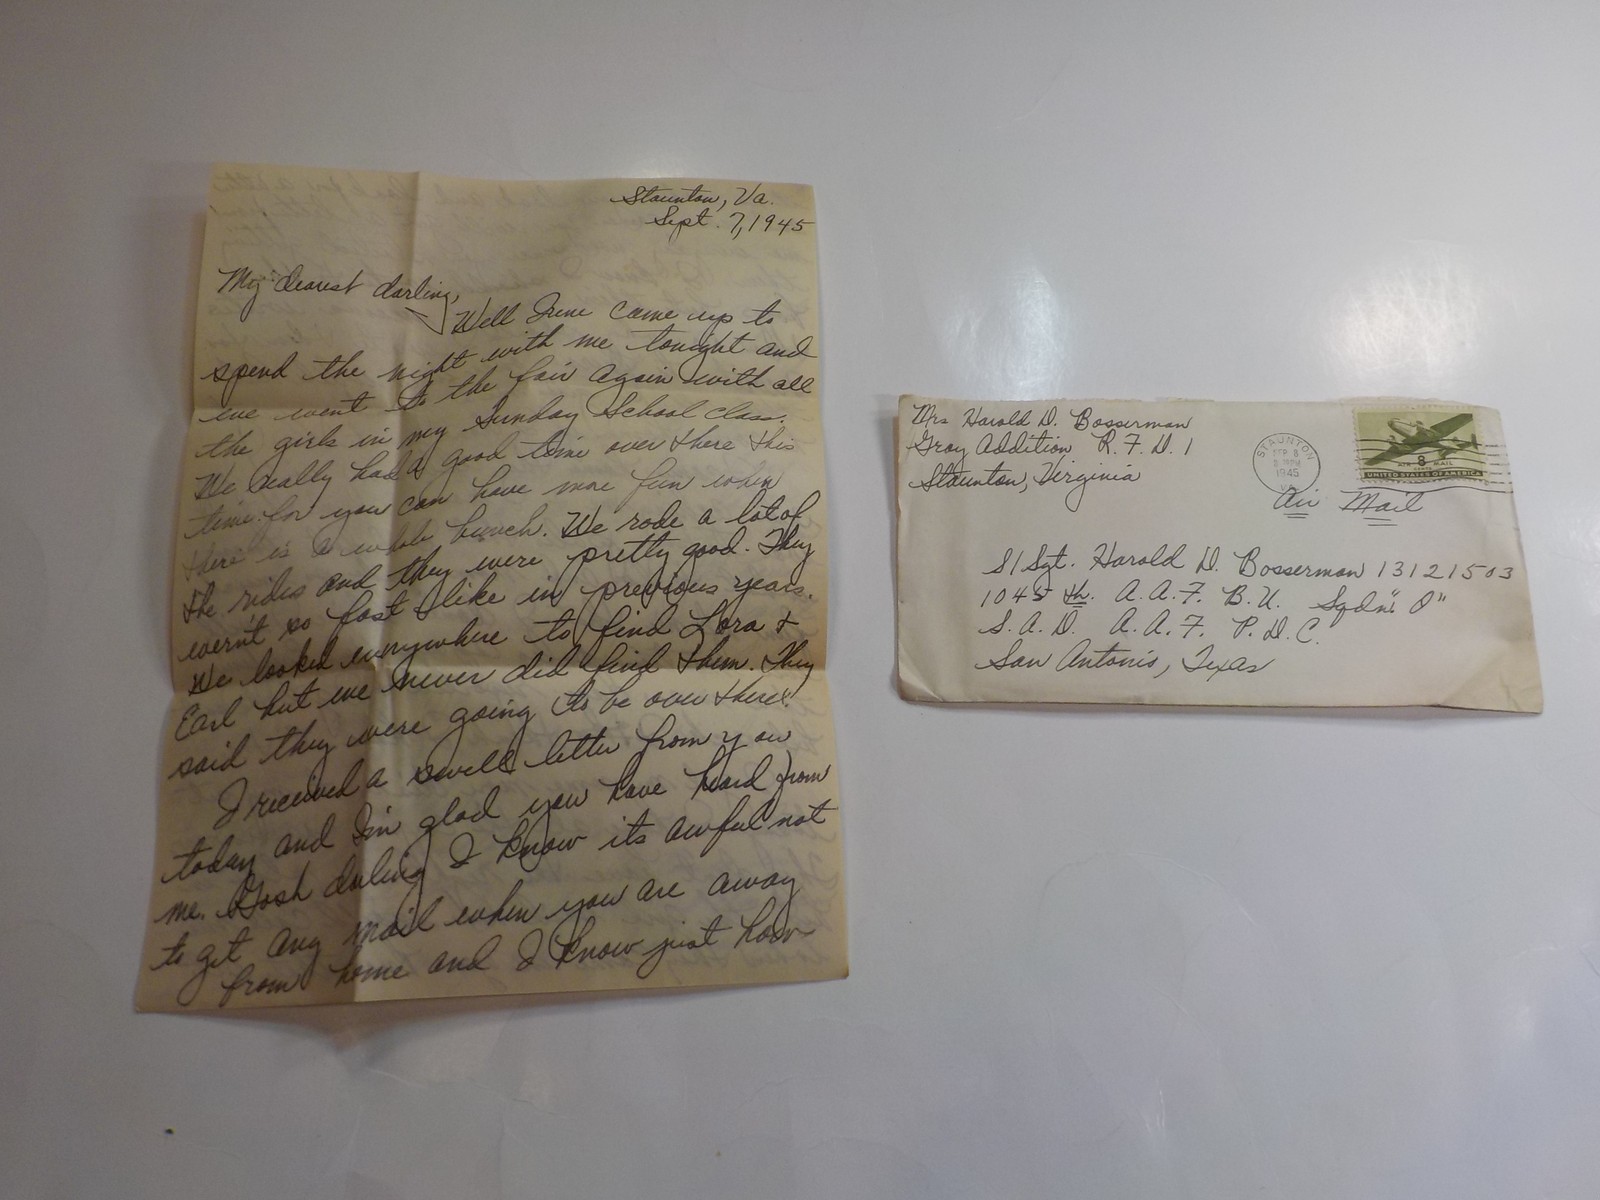 Staunton, Va.
Sept. 7, 1945
My dearest darling,
Well June came up to
spend the night with me tonight and
we went to the fair again with all
the girls in my Sunday School class.
We really had a good time over there this
time for you can have more fun when
there is a whole bunch. We rode a lot of
the rides and they were pretty good. They
weren't so fast like in previous years.
We looked everywhere to find Lora +
Earl but we never did find them. They
said they were going to be over there.
I received a swell letter from you
today and I'm glad you have heard from
me. Gosh darling I know its awful not
to get any mail when you are away
from home and I know just how
Mrs Harold D. Bosserman
Gray Addition R.F.D. 1
Staunton, Virginia
STAUNTON
SEP 8
1945
VA.
AIR MAIL
8
UNITED STATES OF AMERICA
Air Mail
S/Sgt. Harold D. Bosserman 13121503
1045 th. A.A.F. B.U. Sqdn. "O"
S.A.D. A.A.F. P.D.C.
San Antonio, Texas